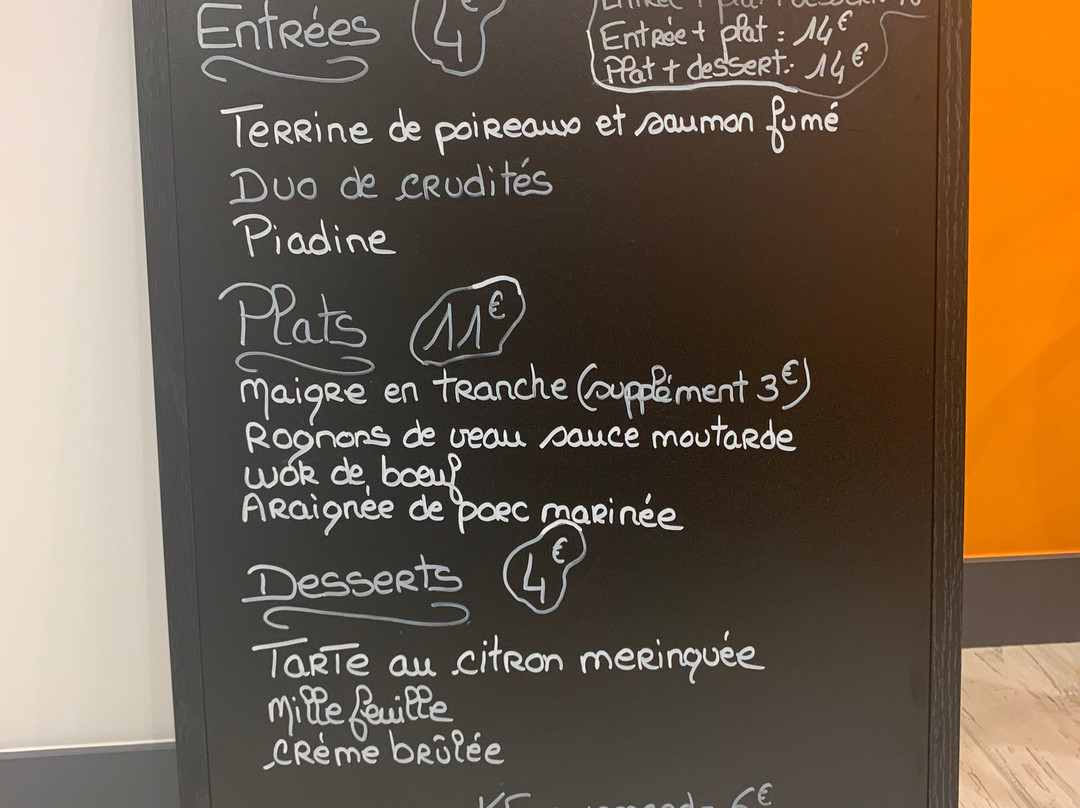 Entrées 4€
Entrée + plat : 14€
Plat + dessert : 14€
Terrine de poireaux et saumon fumé
Duo de crudités
Piadine
Plats 11€
Maigre en tranche (supplément 3€)
Rognons de veau sauce moutarde
Wok de bœuf
Araignée de porc marinée
Desserts 4€
Tarte au citron meringuée
Mille feuille
Crème brûlée
6€